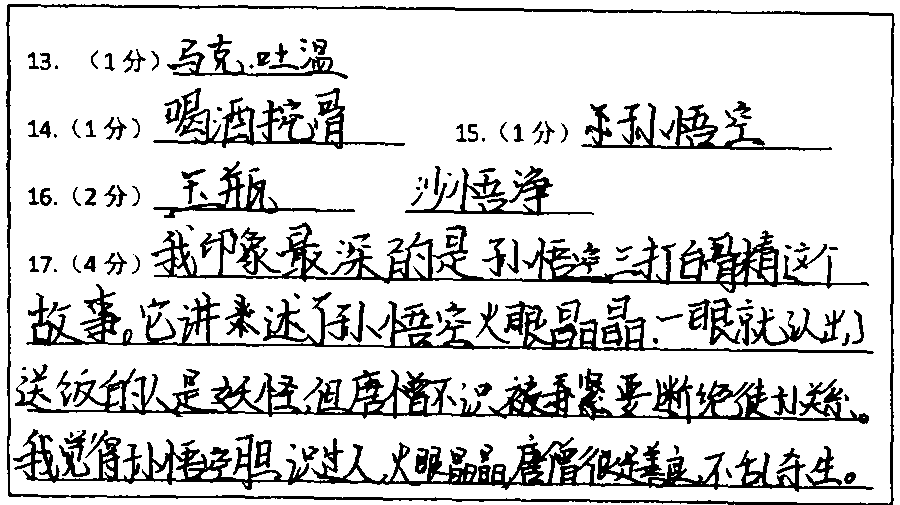 13. （1分）马克.吐温
14.（1分）喝酒挖骨 15.（1分）孙悟空
16.（2分）玉瓶 沙悟净
17.（4分）我印象最深的是孙悟空三打白骨精这个
故事。它讲来述了孙悟空火眼晶晶.一眼就认出了
送饭的人是妖怪,但唐僧不识,被要断绝徒关系。
我觉得孙悟空胆识过人,火眼晶晶,唐僧很是善良,不乱夺生。